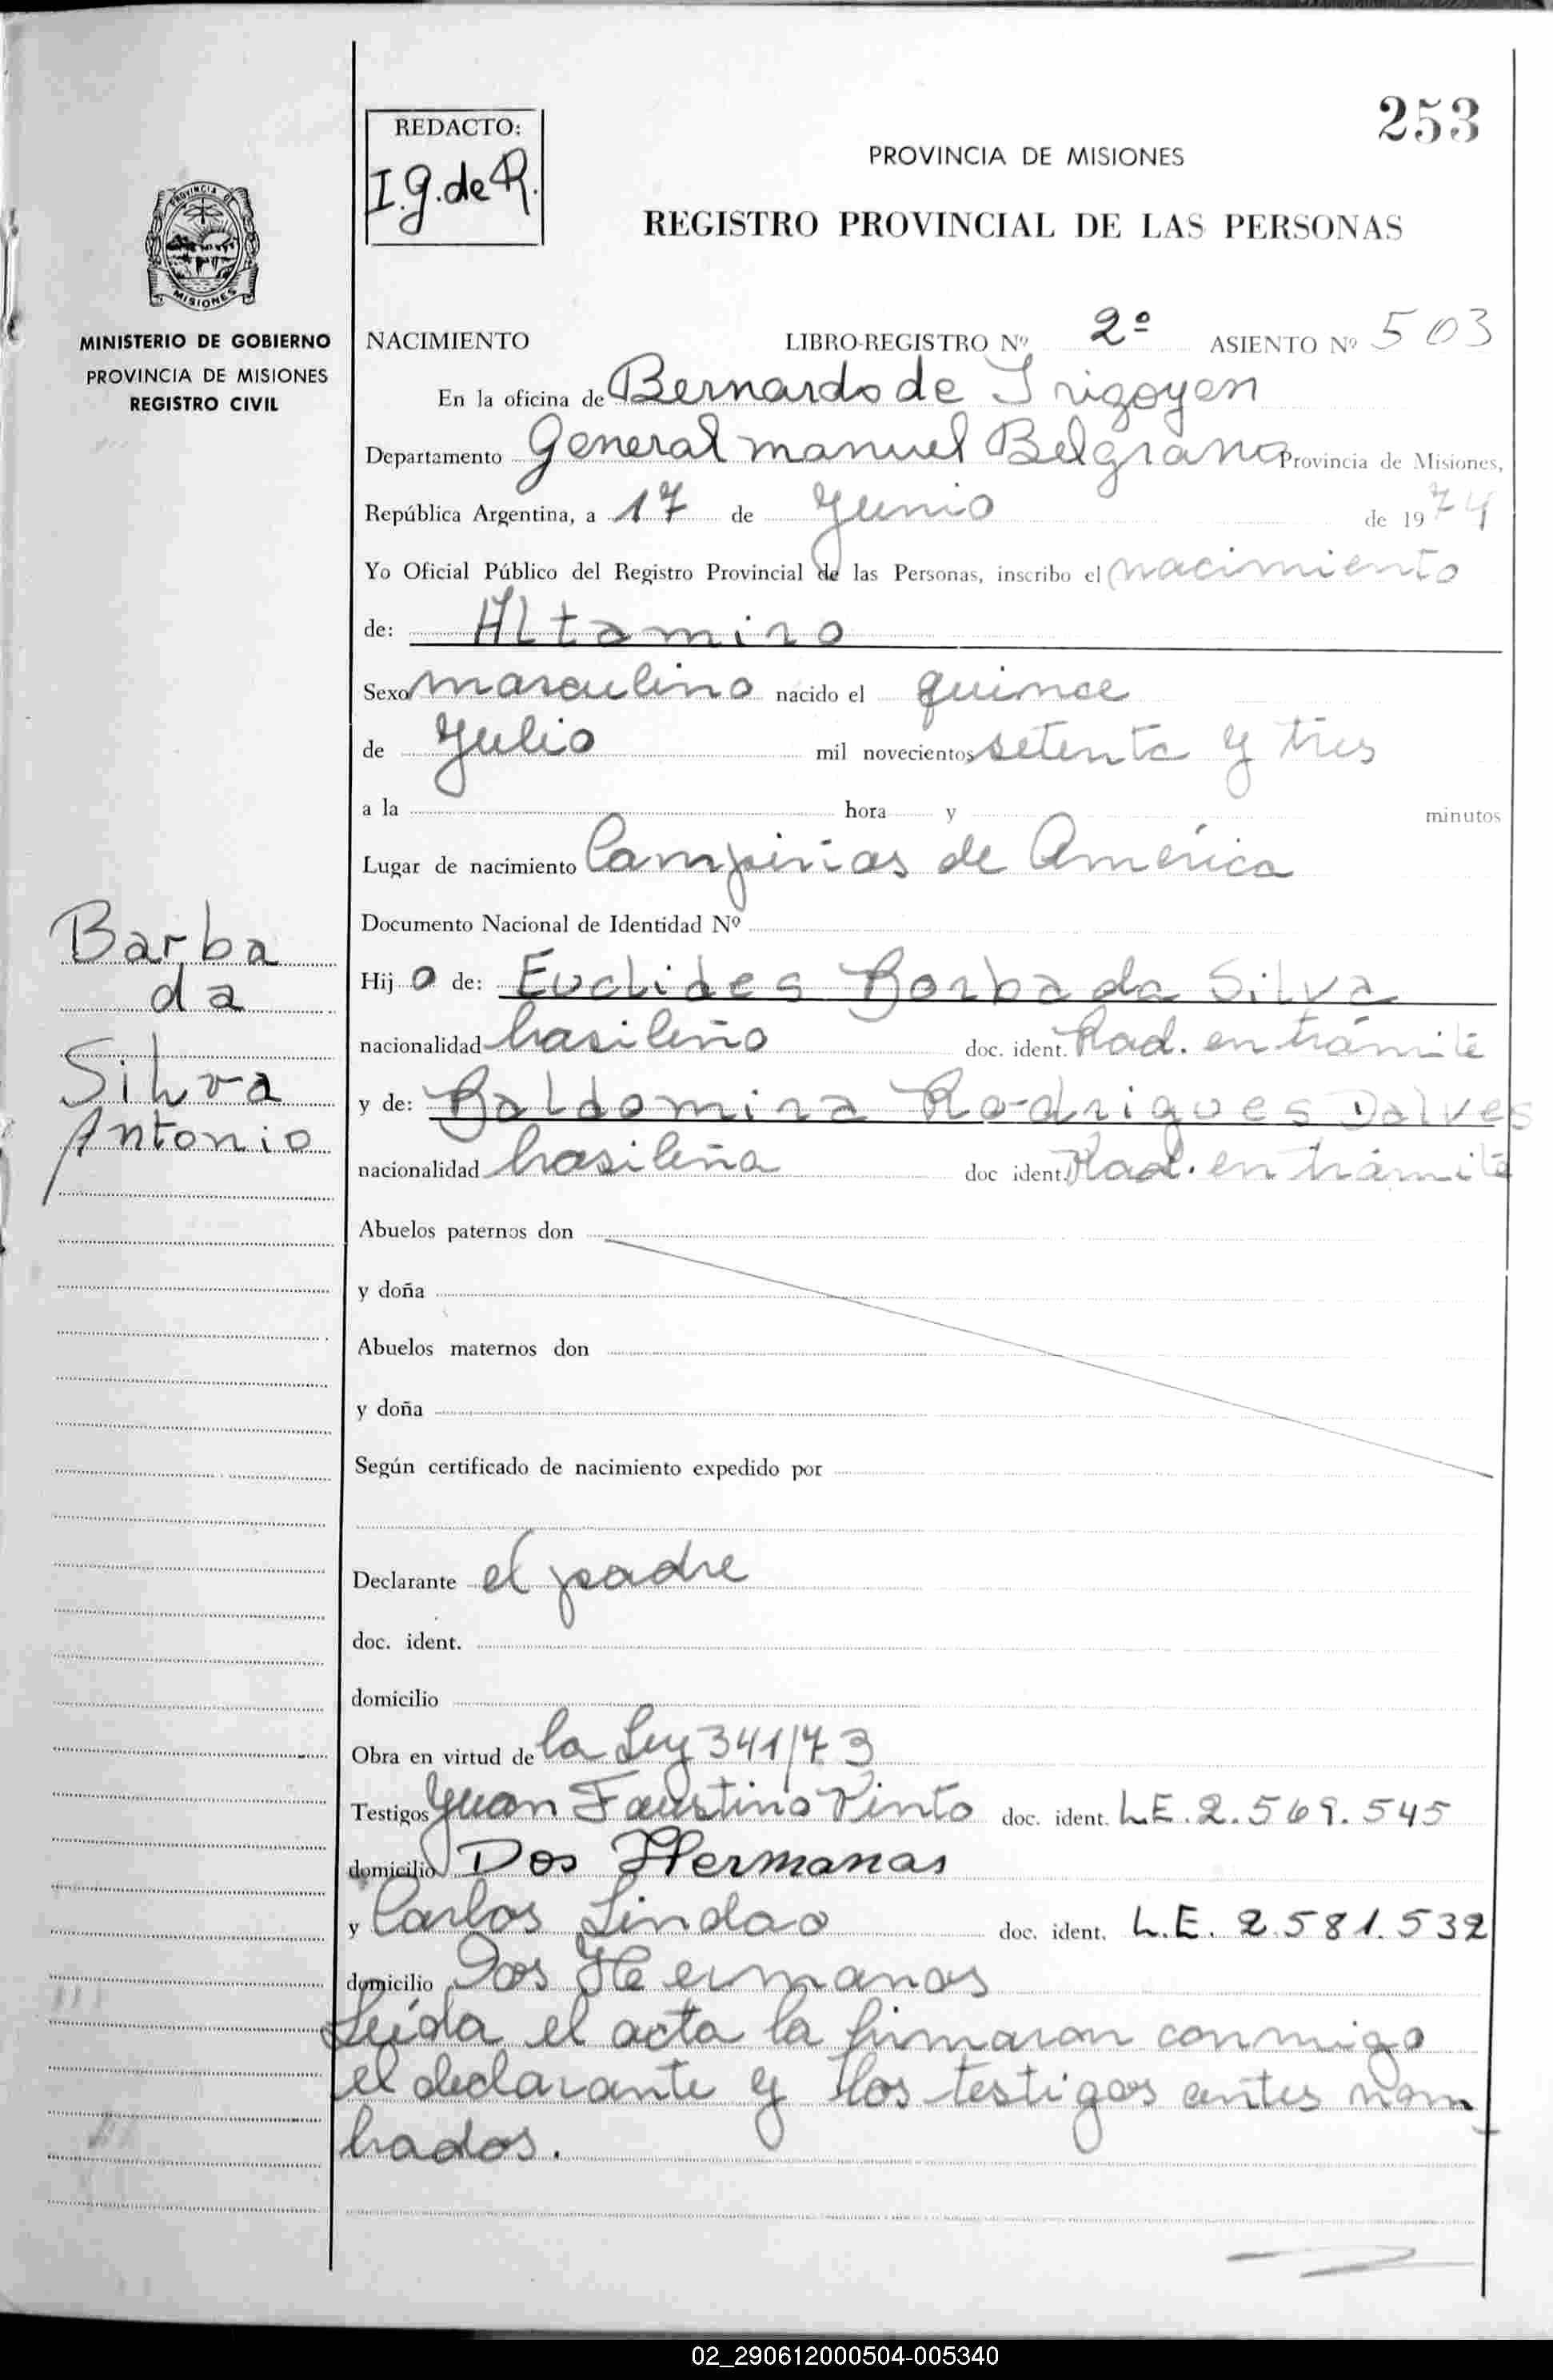 253
REDACTO:
I.G.de R.
PROVINCIA DE MISIONES
REGISTRO PROVINCIAL DE LAS PERSONAS
PROVINCIA DE
MISIONES
MINISTERIO DE GOBIERNO
PROVINCIA DE MISIONES
REGISTRO CIVIL
NACIMIENTO LIBRO-REGISTRO Nº 2º ASIENTO Nº 503
En la oficina de Bernardo de Irigoyen
Departamento General manuel Belgrano Provincia de Misiones,
República Argentina, a 17 de Junio de 1974
Yo Oficial Público del Registro Provincial de las Personas, inscribo el nacimiento
de: Altamiro
Sexo masculino nacido el quince
de Julio mil novecientos setenta y tres
a la hora y minutos
Lugar de nacimiento Campiñas de América
Documento Nacional de Identidad Nº
Barba
da
Silva
Antonio
Hijo de: Euclides Borba da Silva
nacionalidad brasileño doc. ident. Rad. en trámite
y de: Baldomira Rodrigues Dalves
nacionalidad brasileña doc ident. Rad. en trámite
Abuelos paternos don
y doña
Abuelos maternos don
y doña
Según certificado de nacimiento expedido por
Declarante el padre
doc. ident.
domicilio
Obra en virtud de la Ley 341/73
Testigos Juan Faustino Pinto doc. ident. L.E. 2.569.545
domicilio Dos Hermanas
y Carlos Lindao doc. ident. L.E. 2.581.532
domicilio Dos Hermanas
Leída el acta la firmaron conmigo
el declarante y los testigos antes nom
brados.
02_290612000504-005340